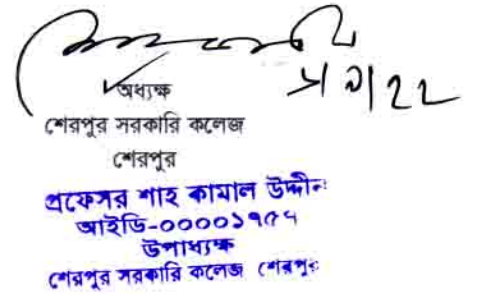 ১/৯/২২
অধ্যক্ষ
শেরপুর সরকারি কলেজ
শেরপুর
প্রফেসর শাহ কামাল উদ্দীন
আইডি-০০০০১৭৫৭
উপাধ্যক্ষ
শেরপুর সরকারি কলেজ শেরপুর